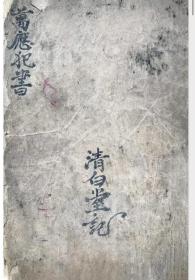 萬應犯書
清白堂記